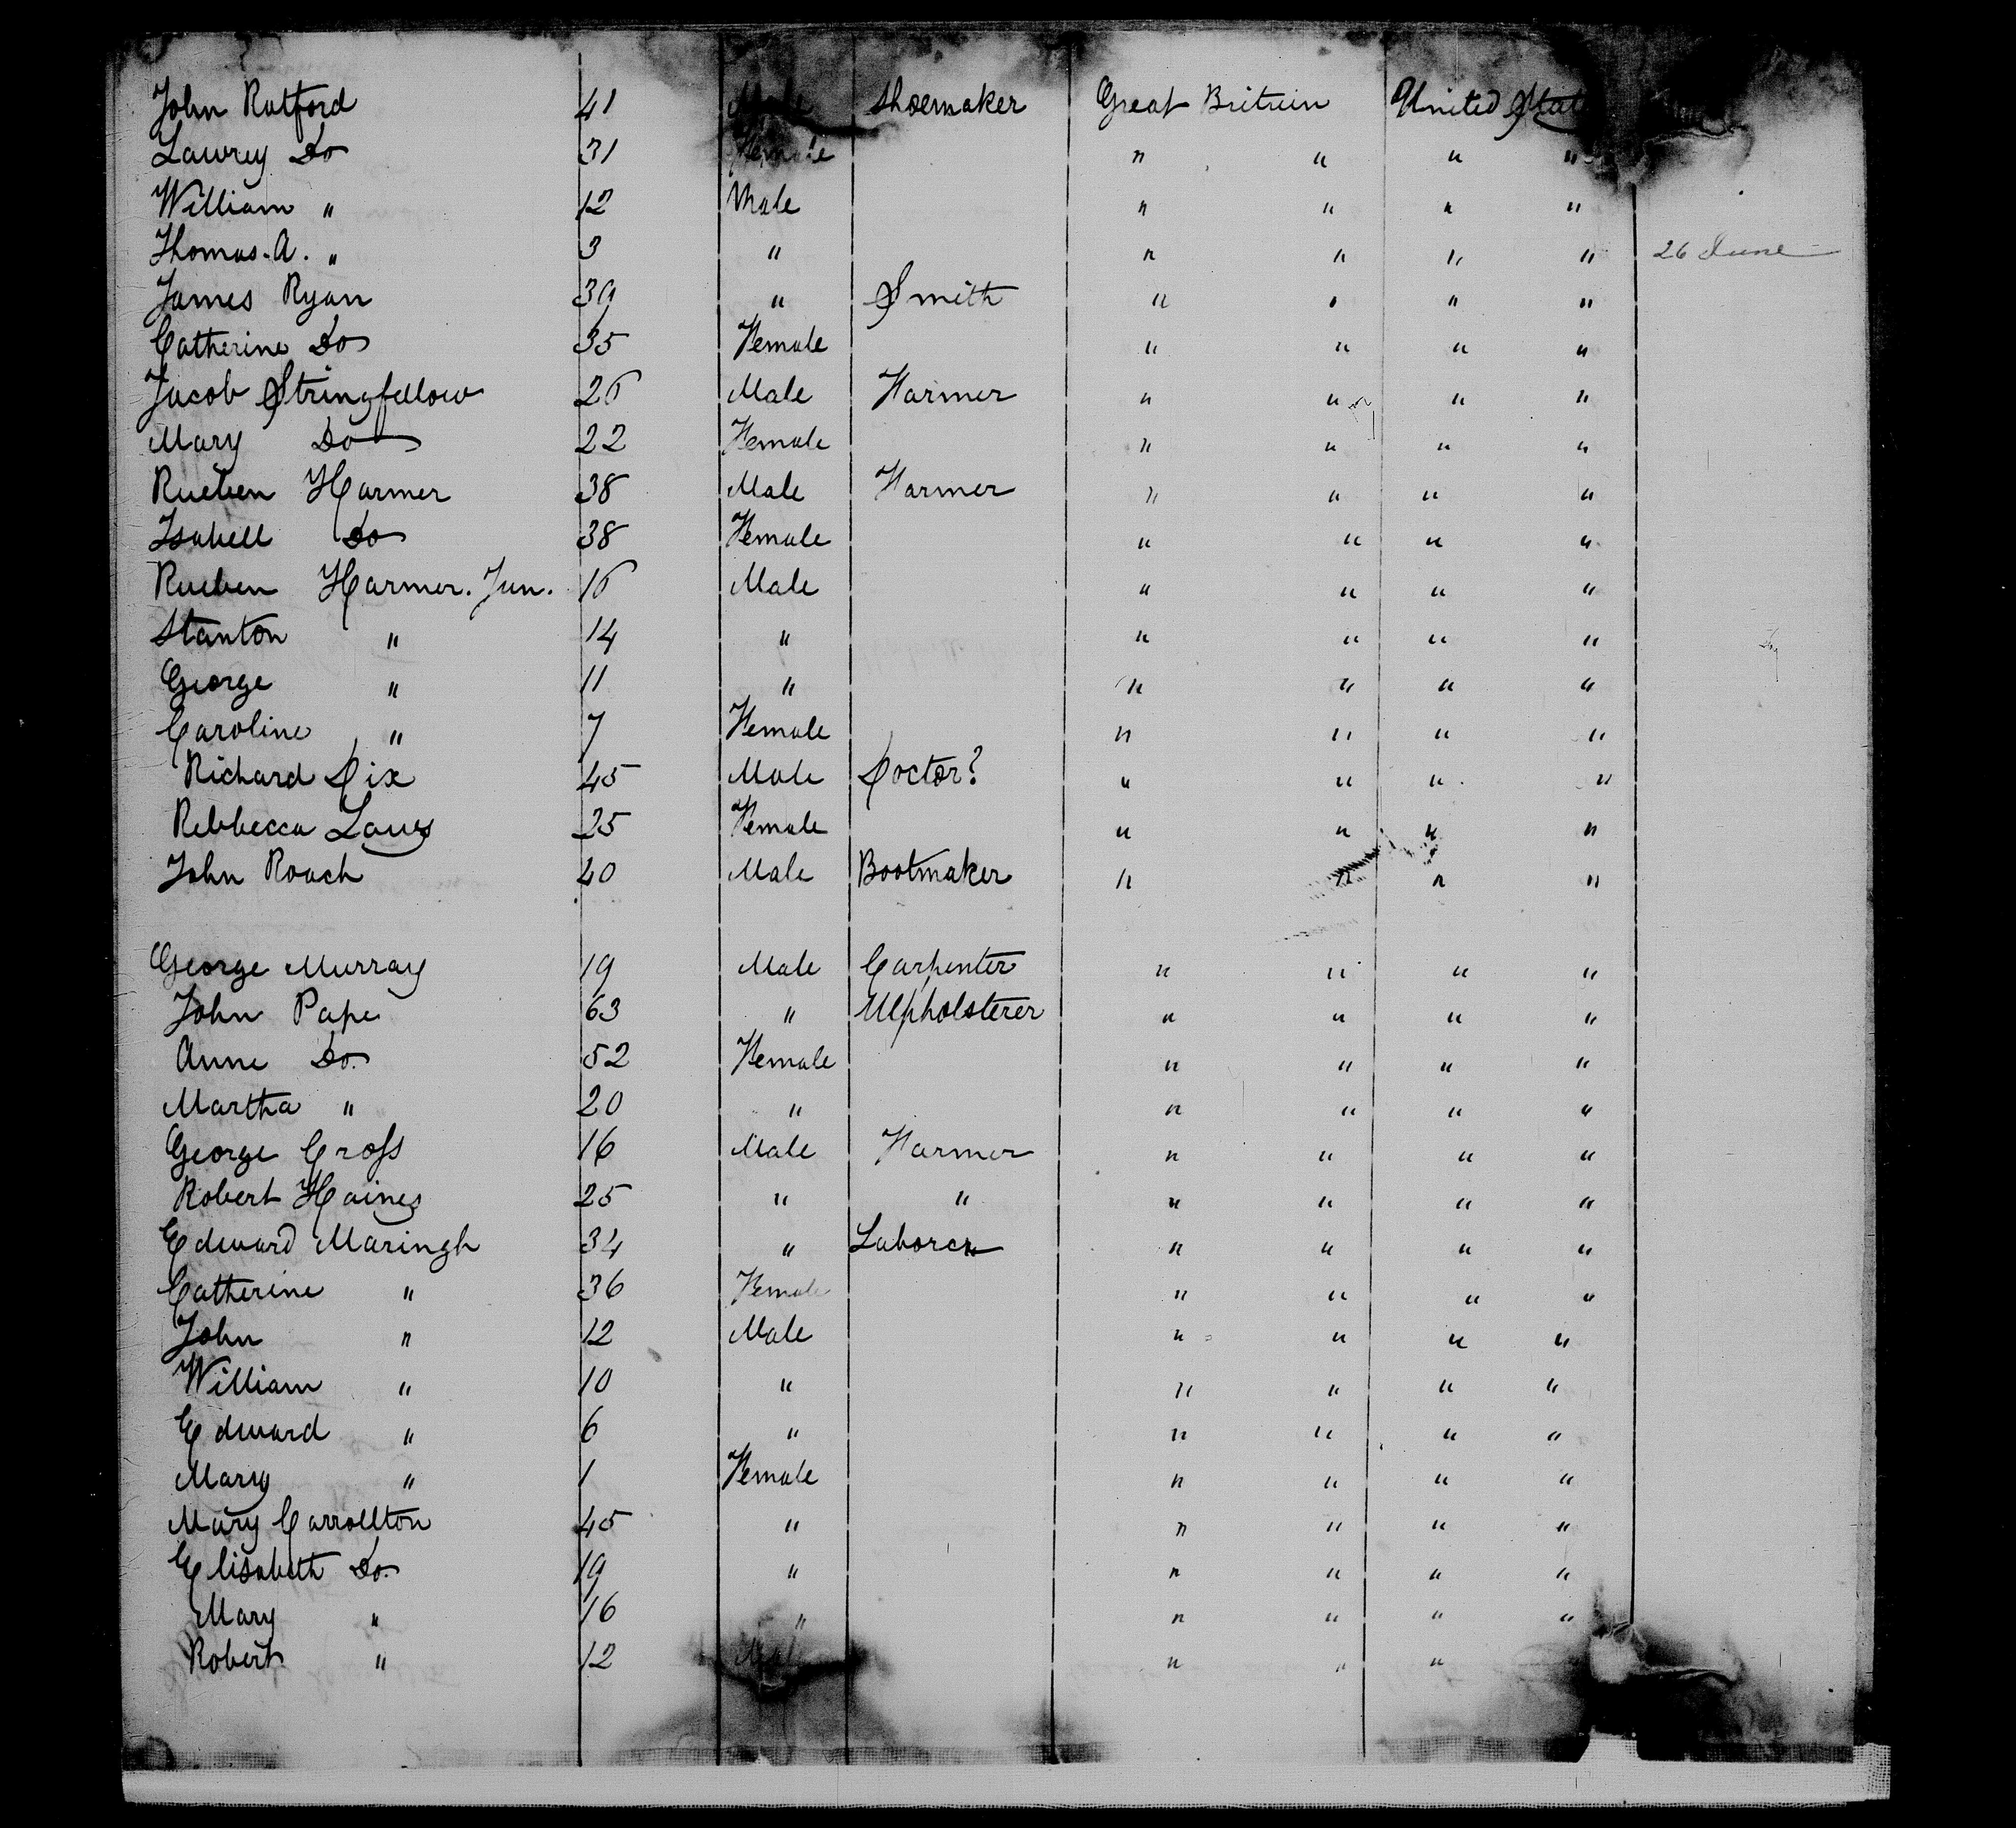 John Rutford 41 Male Shoemaker Great Britain United Stat
Lawrey Do 31 Female " " " "
William " 12 Male " " " "
Thomas. A. " 3 " " " " " 26 June
James Ryan 39 " Smith " " " "
Catherine Do 35 Female " " " "
Jacob Stringfellow 26 Male Farmer " " " "
Mary Do 22 Female " " " "
Rueben Harmer 38 Male Farmer " " " "
Isabell Do 38 Female " " " "
Rueben Harmer. Jun. 16 Male " " " "
Stanton " 14 " " " " "
George " 11 " " " " "
Caroline " 7 Female " " " "
Richard Dix 45 Male Doctor? " " " "
Rebbecca Laws 25 Female " " " "
John Roach 40 Male Bootmaker " " " "
George Murray 19 Male Carpenter " " " "
John Pape 63 " Upholsterer " " " "
Anne Do. 52 Female " " " "
Martha " 20 " " " " "
George Cross 16 Male Farmer " " " "
Robert Haines 25 " " " " " "
Edward Maringh 34 " Laborer " " " "
Catherine " 36 Female " " " "
John " 12 Male " " " "
William " 10 " " " " "
Edward " 6 " " " " "
Mary " 1 Female " " " "
Mary Carrollton 45 " " " " "
Elisabeth Do. 19 " " " " "
Mary " 16 " " " " "
Robert " 12 Male " " "